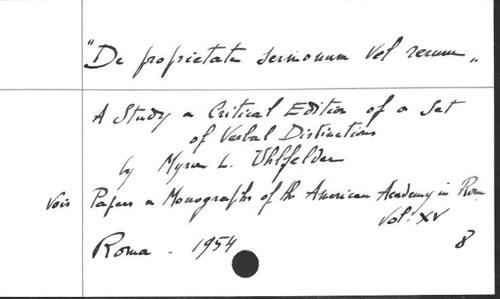 "De proprietate sermonum vel rerum"
A Study a Critical Edition of a Set
of Verbal Distinctions
by Myra L. Uhlfelder
Vois Papers a Monographs of the American Academy in Rome
Vol. XV
Roma - 1954 8